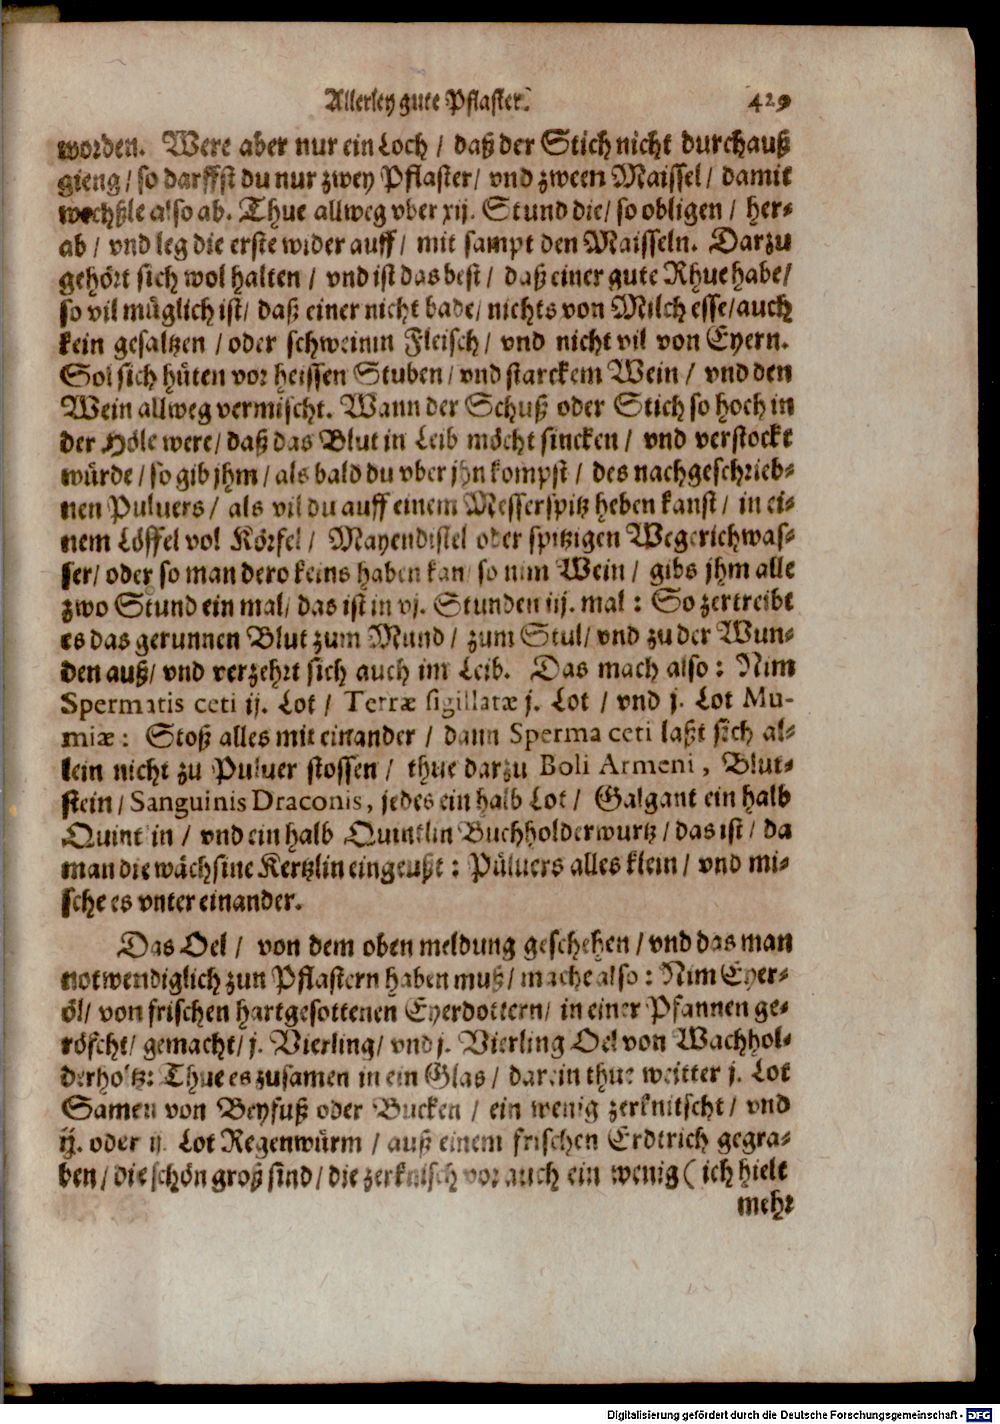 Allerley gute Pflaster. 429
worden. Were aber nur ein Loch / daß der Stich nicht durchauß
gieng / so darffst du nur zwey Pflaster / vnd zween Maissel / damit
wechßle also ab. Thue allweg vber xij. Stund die / so obligen / her-
ab / vnd leg die erste wider auff / mit sampt den Maisseln. Darzu
gehört sich wol halten / vnd ist das best / daß einer gute Rhue habe /
so vil müglich ist / daß einer nicht bade / nichts von Milch esse / auch
kein gesaltzen / oder schweinin Fleisch / vnd nicht vil von Eyern.
Sol sich hüten vor heissen Stuben / vnd starckem Wein / vnd den
Wein allweg vermischt. Wann der Schuß oder Stich so hoch in
der Höle were / daß das Blut in Leib möcht sincken / vnd verstockt
würde / so gib jhm / als bald du vber jhn kompst / des nachgeschrieb-
nen Puluers / als vil du auff einem Messerspitz heben kanst / in ei-
nem Löffel vol Körfel / Mayendistel oder spitzigen Wegerichwas-
ser / oder so man dero keins haben kan / so nim Wein / gibs jhm alle
zwo Stund ein mal / das ist in vj. Stunden iij. mal : So zertreibt
es das gerunnen Blut zum Mund / zum Stul / vnd zu der Wun-
den auß / vnd verzehrt sich auch im Leib. Das mach also : Nim
Spermatis ceti ij. Lot / Terræ sigillatæ j. Lot / vnd j. Lot Mu-
miæ : Stoß alles mit einander / dann Sperma ceti laßt sich al-
lein nicht zu Puluer stossen / thue darzu Boli Armeni, Blut-
stein / Sanguinis Draconis, jedes ein halb Lot / Galgant ein halb
Quintlin / vnd ein halb Quintlin Buchholderwurtz / das ist / da
man die wächsine Kertzlin eingeußt : Pülvers alles klein / vnd mi-
sche es vnter einander.
Das Oel / von dem oben meldung geschehen / vnd das man
notwendiglich zun Pflastern haben muß / mache also : Nim Eyer-
öl / von frischen hartgesottenen Eyerdottern / in einer Pfannen ge-
röscht / gemacht / j. Vierling / vnd j. Vierling Oel von Wachhol-
derholtz : Thue es zusamen in ein Glas / darein thue weitter j. Lot
Samen von Beyfuß oder Bucken / ein wenig zerknitscht / vnd
ij. oder ij. Lot Regenwürm / auß einem frischen Erdtrich gegra-
ben / die schön groß sind / die zerknitsch vor auch ein wenig ( ich hielt
mehr
Digitalisierung gefördert durch die Deutsche Forschungsgemeinschaft - DFG